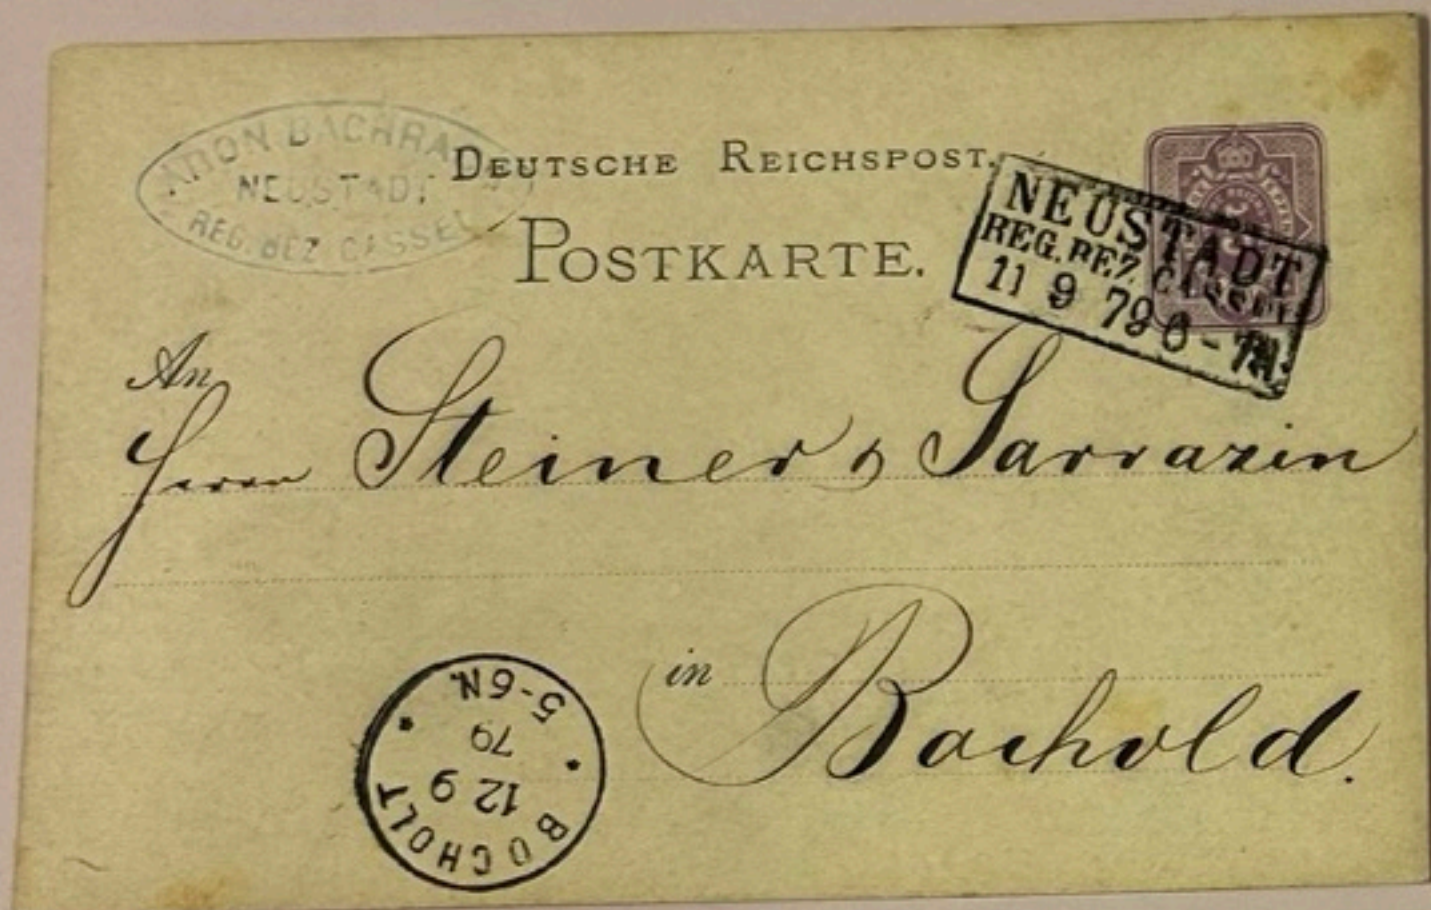 ARON BACHRACH
NEUSTADT
REG. BEZ. CASSEL
DEUTSCHE REICHSPOST.
POSTKARTE.
NEUSTADT
REG. BEZ. CASSEL
11 9 79 6-7N.
An
Herrn Steiner & Sarrazin
in Bochold.
BOCHOLT
12 9
79
5-6N.